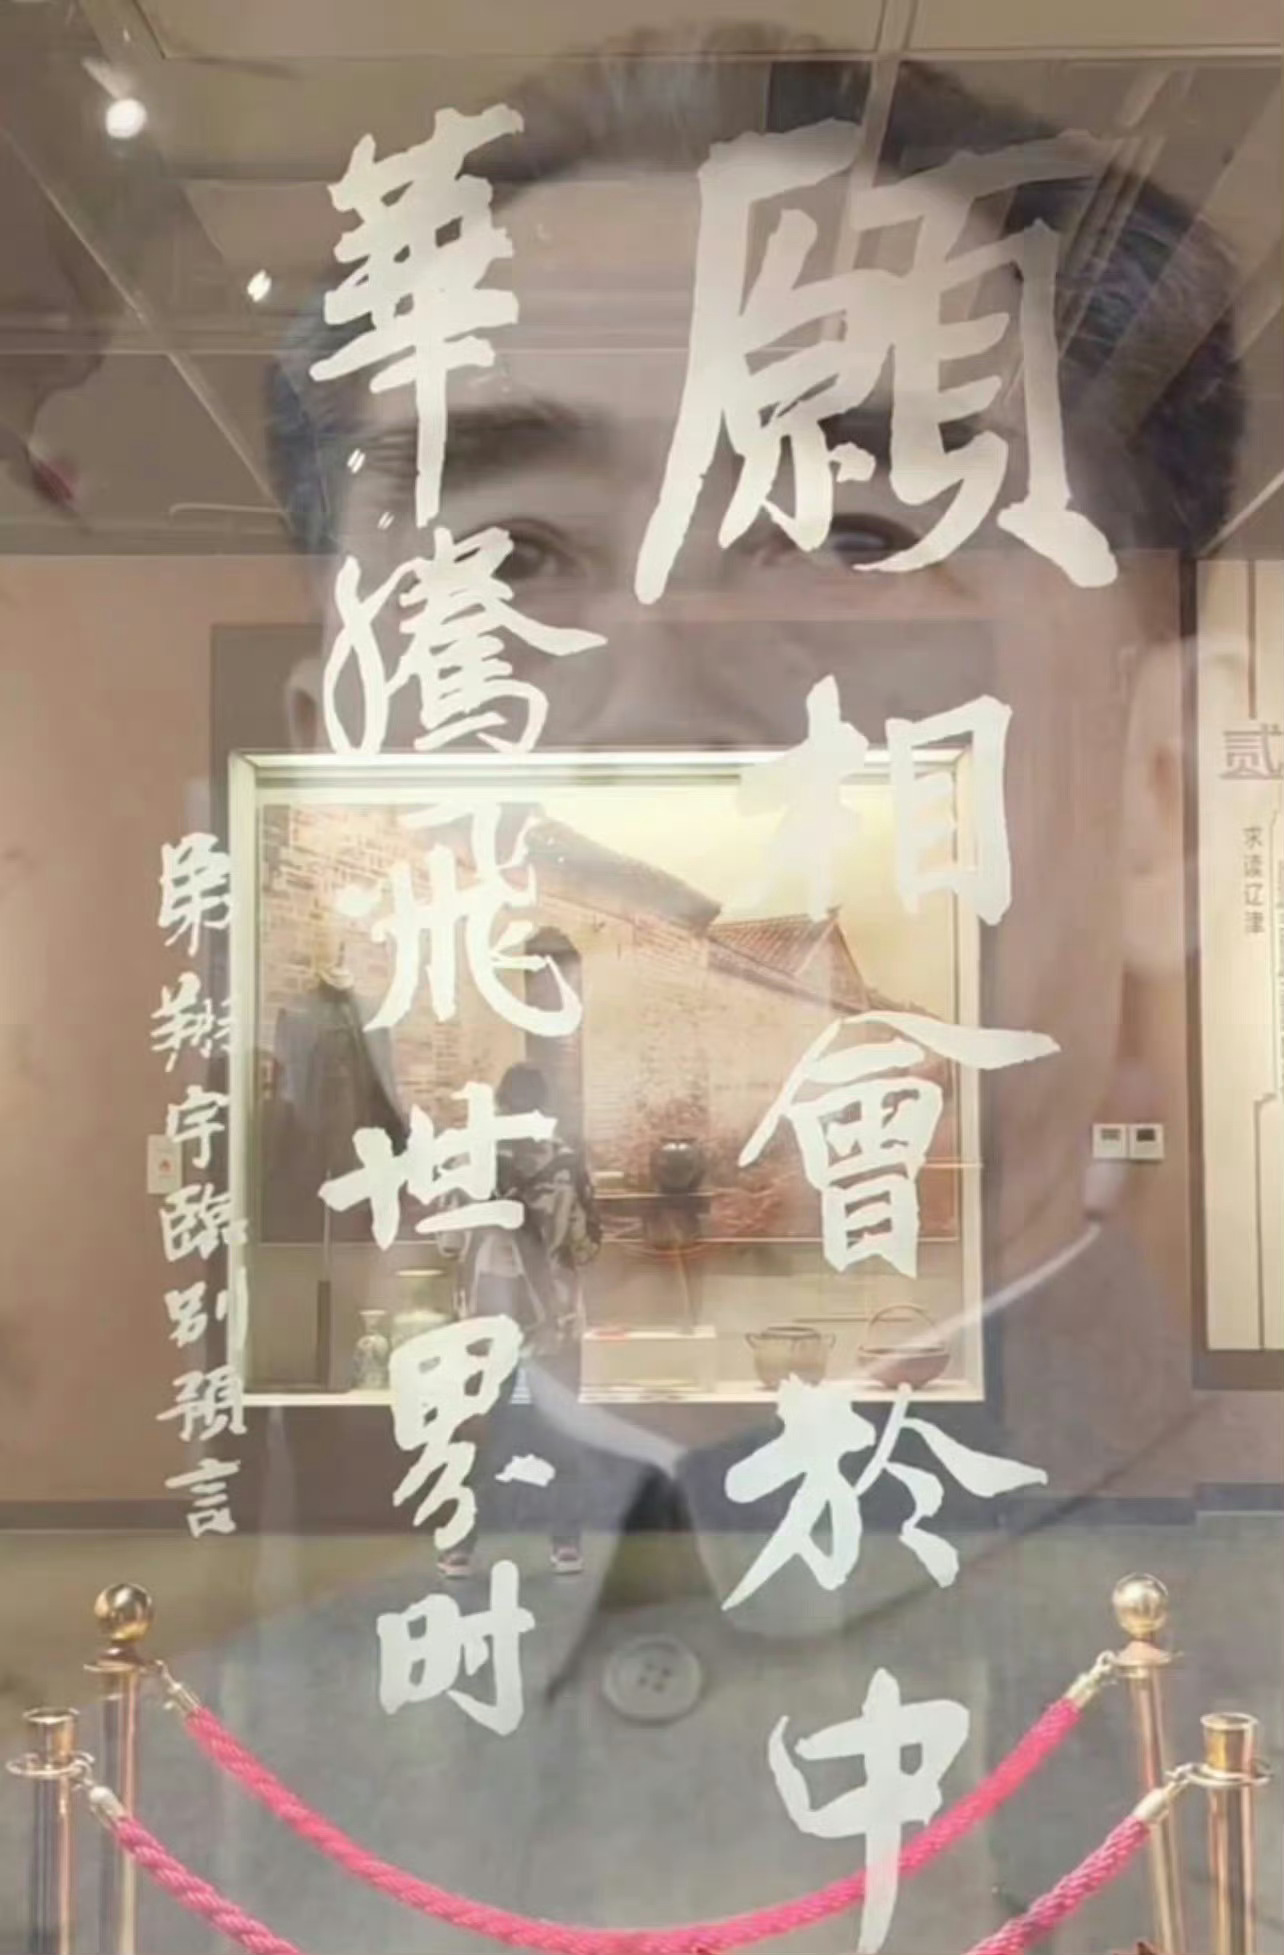 願相會於中
華騰飛世界时
弟翔宇臨别預言
贰
求读辽津